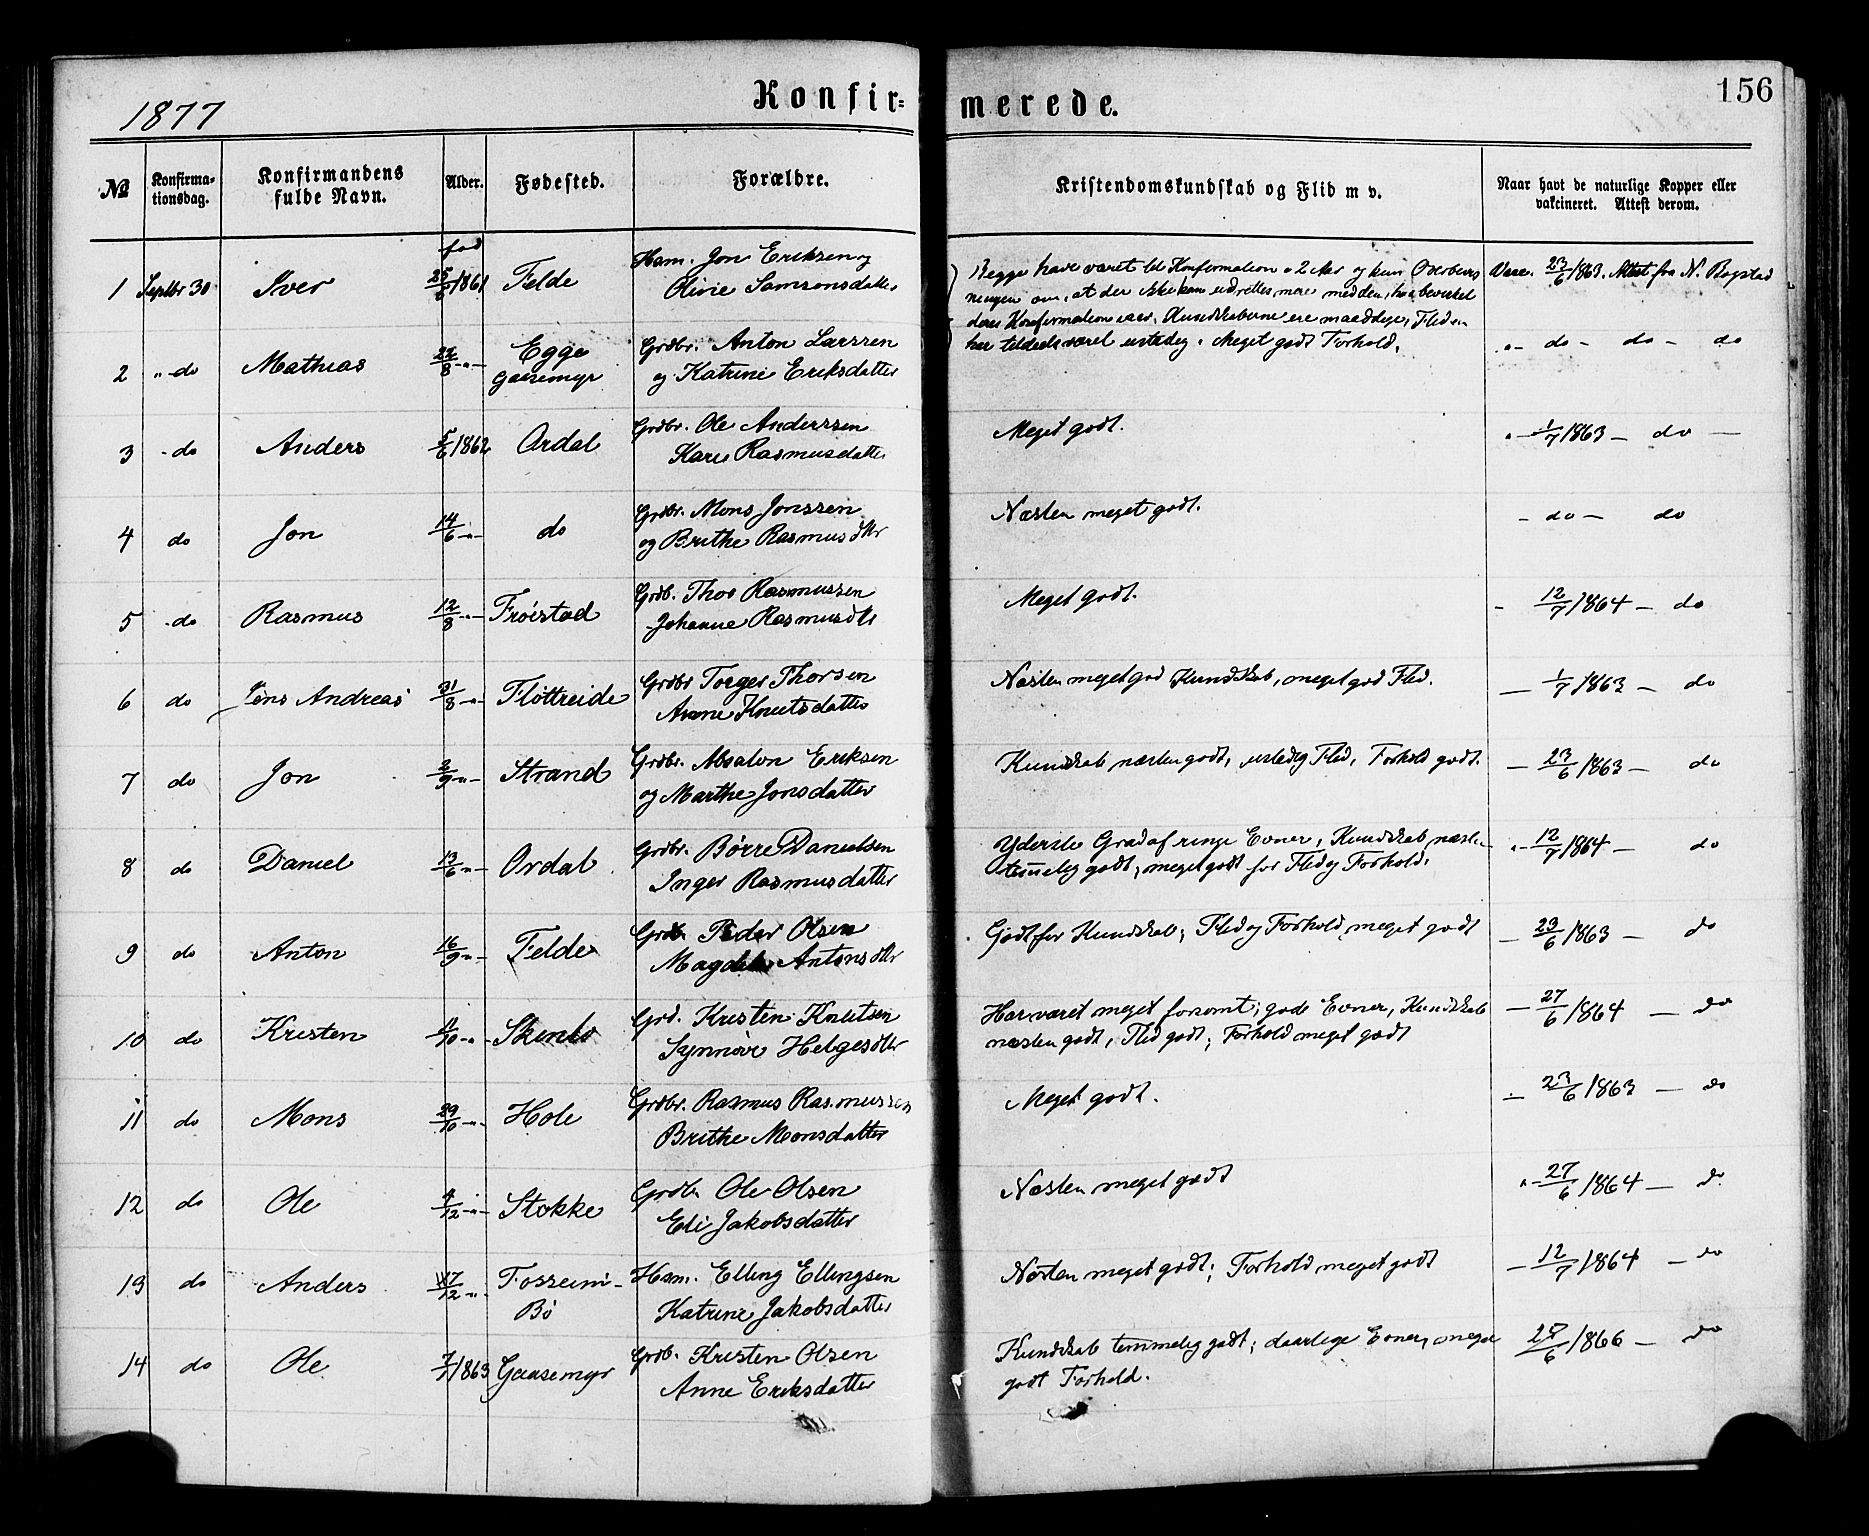 1877
Konfir-
merede.
156
№
Konfirma-
tionsdag.
Konfirmandens
fulde Navn.
Alder.
Fødested.
Forældre.
Kristendomskundskab og Flid m v.
Naar havt de naturlige Kopper eller
vakcineret. Attest derom.
1 Septbr 30 Iver fød 25/6 1861 Felde Hsm. Jon Eriksen og
Olivie Samsonsdatter
Begge have været til Konfirmation 2 Aar og kun Overbevis
ningen om, at der ikke kan udrettes mere med dem, har bevirket
deres Konfirmation iaar. Kundskaberne ere maadelige, Fliden
har tildeels været ustadig. Meget godt Forhold.
Vacc. 23/6 1863. Attest fra N. Bogstad
2 " do Mathias 22/8 -"- Egge Grdbr. Anton Larssen
Gaasemyr og Katrine Eriksdatter
"- do - do - do
3 - do Anders 5/6 1862 Ordal Grdbr. Ole Anderssen
Kari Rasmusdatter
Meget godt.
"- 1/7 1863 - do -
4 do Jon 14/6 -"- do Grdbr. Mons Jonssen
og Brithe Rasmusdtr
Næsten meget godt.
- do - do
5 - do Rasmus 12/8 -"- Frøistad Grdb. Thor Rasmussen
Johanne Rasmusdtr
Meget godt.
- 12/7 1864 - do
6 do Jens Andreas 31/8 -"- Fløttreide Grdbr Torger Thorsen
Anne Knutsdatter
Næsten meget god Kundskab, meget god Flid.
- 1/7 1863 - do
7 do Jon 2/9 -"- Strand Grdbr. Absalon Eriksen
og Marthe Jonsdatter
Kundskab næsten godt, ustadig Flid, Forhold godt.
- 23/6 1863 - do
8 do Daniel 13/6 -"- Ordal Grdbr. Børre Danielsen
Inger Rasmusdatter
Yderste Grad af ringe Evner, Kundskab næsten
temmelig godt, meget godt for Flid og Forhold.
"- 12/7 1864 - do
9 do Anton 16/9 -"- Felde Grdb. Peder Olsen
Antonsdtr
Godt for Kundskab; Flid og Forhold meget godt
- 23/6 1863 - do
10 do Kristen /10 -"- Grd. Kristen Knutsen
Synnøve Helgesdtr
Har været meget forsømt; gode Evner, Kundskab
næsten godt, Flid godt; Forhold meget godt
- 27/6 1864 - do
11 do Mons 29/10 -"- Hole Grdbr. Rasmus Rasmussen
Brithe Monsdatter
Meget godt.
- 23/6 1863 - do
12 do Ole 4/12 -"- Stokke Grdb. Ole Olsen
Eli Jakobsdatter
Næsten meget godt
"- 27/6 1864 - do
13 do Anders 17/12 -"- Fosseim- Hsm. Elling Ellingsen
Bø Katrine Jakobsdatter
Næsten meget godt; Forhold meget godt
- 12/7 1864 - do
14 do Ole 7/1 1863 Gaasemyr Grdb. Kristen Olsen
Anne Eriksdatter
Kundskab temmelig godt; daarlige Evner, meget
godt Forhold.
/6 1866 - do